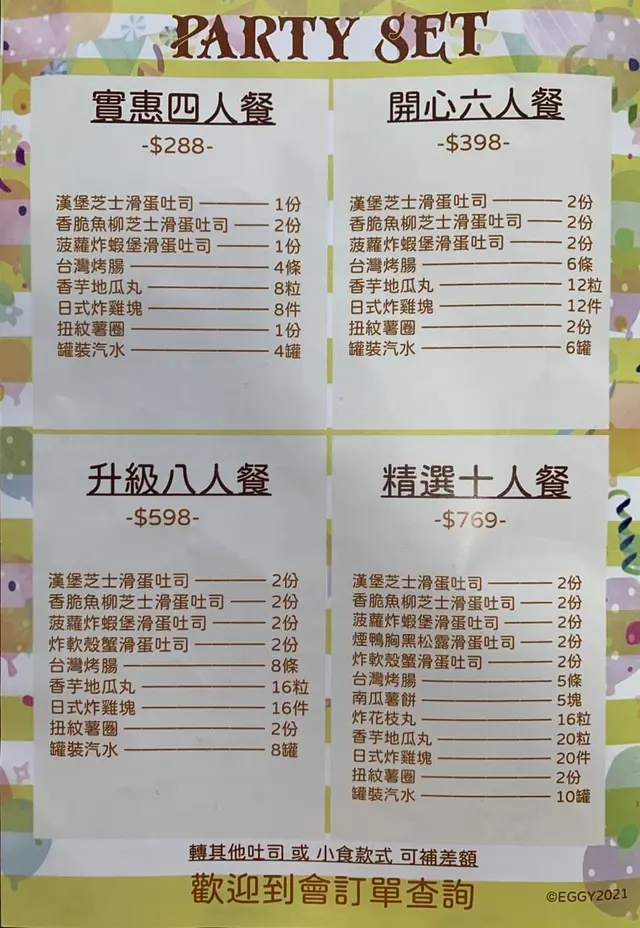 PARTY SET
實惠四人餐
-$288-
漢堡芝士滑蛋吐司 1份
香脆魚柳芝士滑蛋吐司 2份
菠蘿炸蝦堡滑蛋吐司 1份
台灣烤腸 4條
香芋地瓜丸 8粒
日式炸雞塊 8件
扭紋薯圈 1份
罐裝汽水 4罐
開心六人餐
-$398-
漢堡芝士滑蛋吐司 2份
香脆魚柳芝士滑蛋吐司 2份
菠蘿炸蝦堡滑蛋吐司 2份
台灣烤腸 6條
香芋地瓜丸 12粒
日式炸雞塊 12件
扭紋薯圈 2份
罐裝汽水 6罐
升級八人餐
-$598-
漢堡芝士滑蛋吐司 2份
香脆魚柳芝士滑蛋吐司 2份
菠蘿炸蝦堡滑蛋吐司 2份
炸軟殼蟹滑蛋吐司 2份
台灣烤腸 8條
香芋地瓜丸 16粒
日式炸雞塊 16件
扭紋薯圈 2份
罐裝汽水 8罐
精選十人餐
-$769-
漢堡芝士滑蛋吐司 2份
香脆魚柳芝士滑蛋吐司 2份
菠蘿炸蝦堡滑蛋吐司 2份
煙鴨胸黑松露滑蛋吐司 2份
炸軟殼蟹滑蛋吐司 2份
台灣烤腸 5條
南瓜薯餅 5塊
炸花枝丸 16粒
香芋地瓜丸 20粒
日式炸雞塊 20件
扭紋薯圈 2份
罐裝汽水 10罐
轉其他吐司 或 小食款式 可補差額
歡迎到會訂單查詢
©EGGY2021